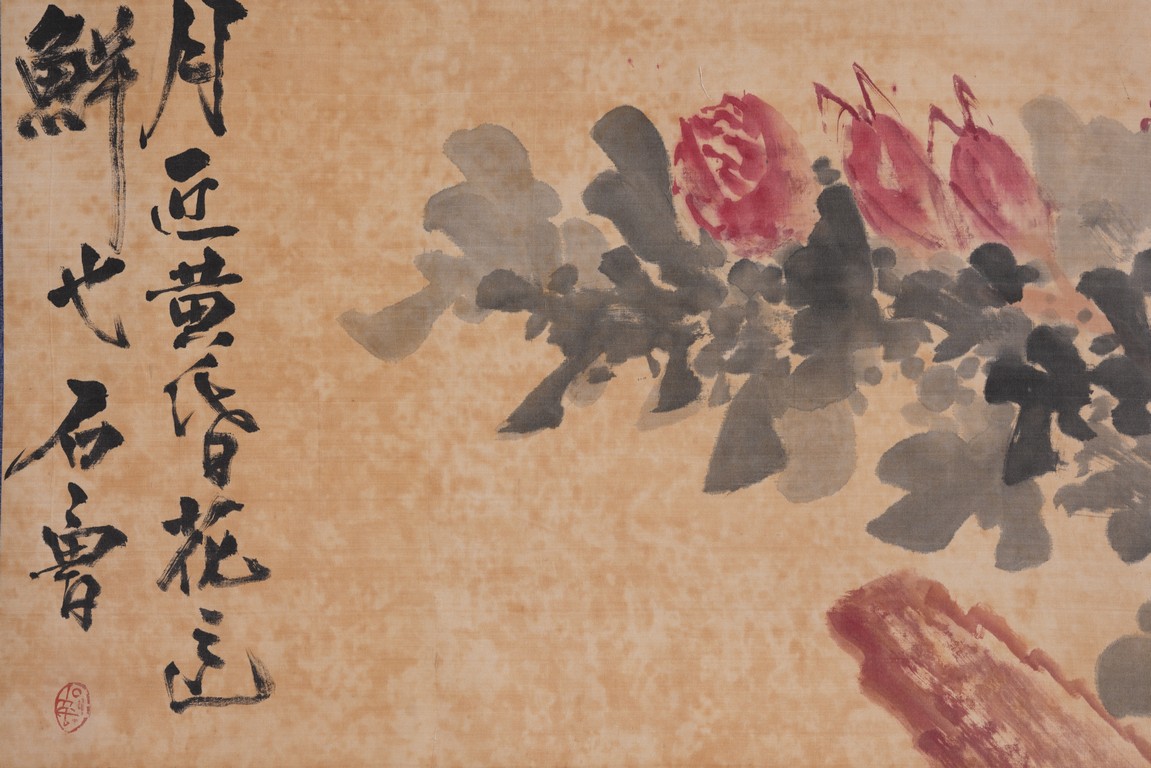 月近黄昏花正
鮮也石魯